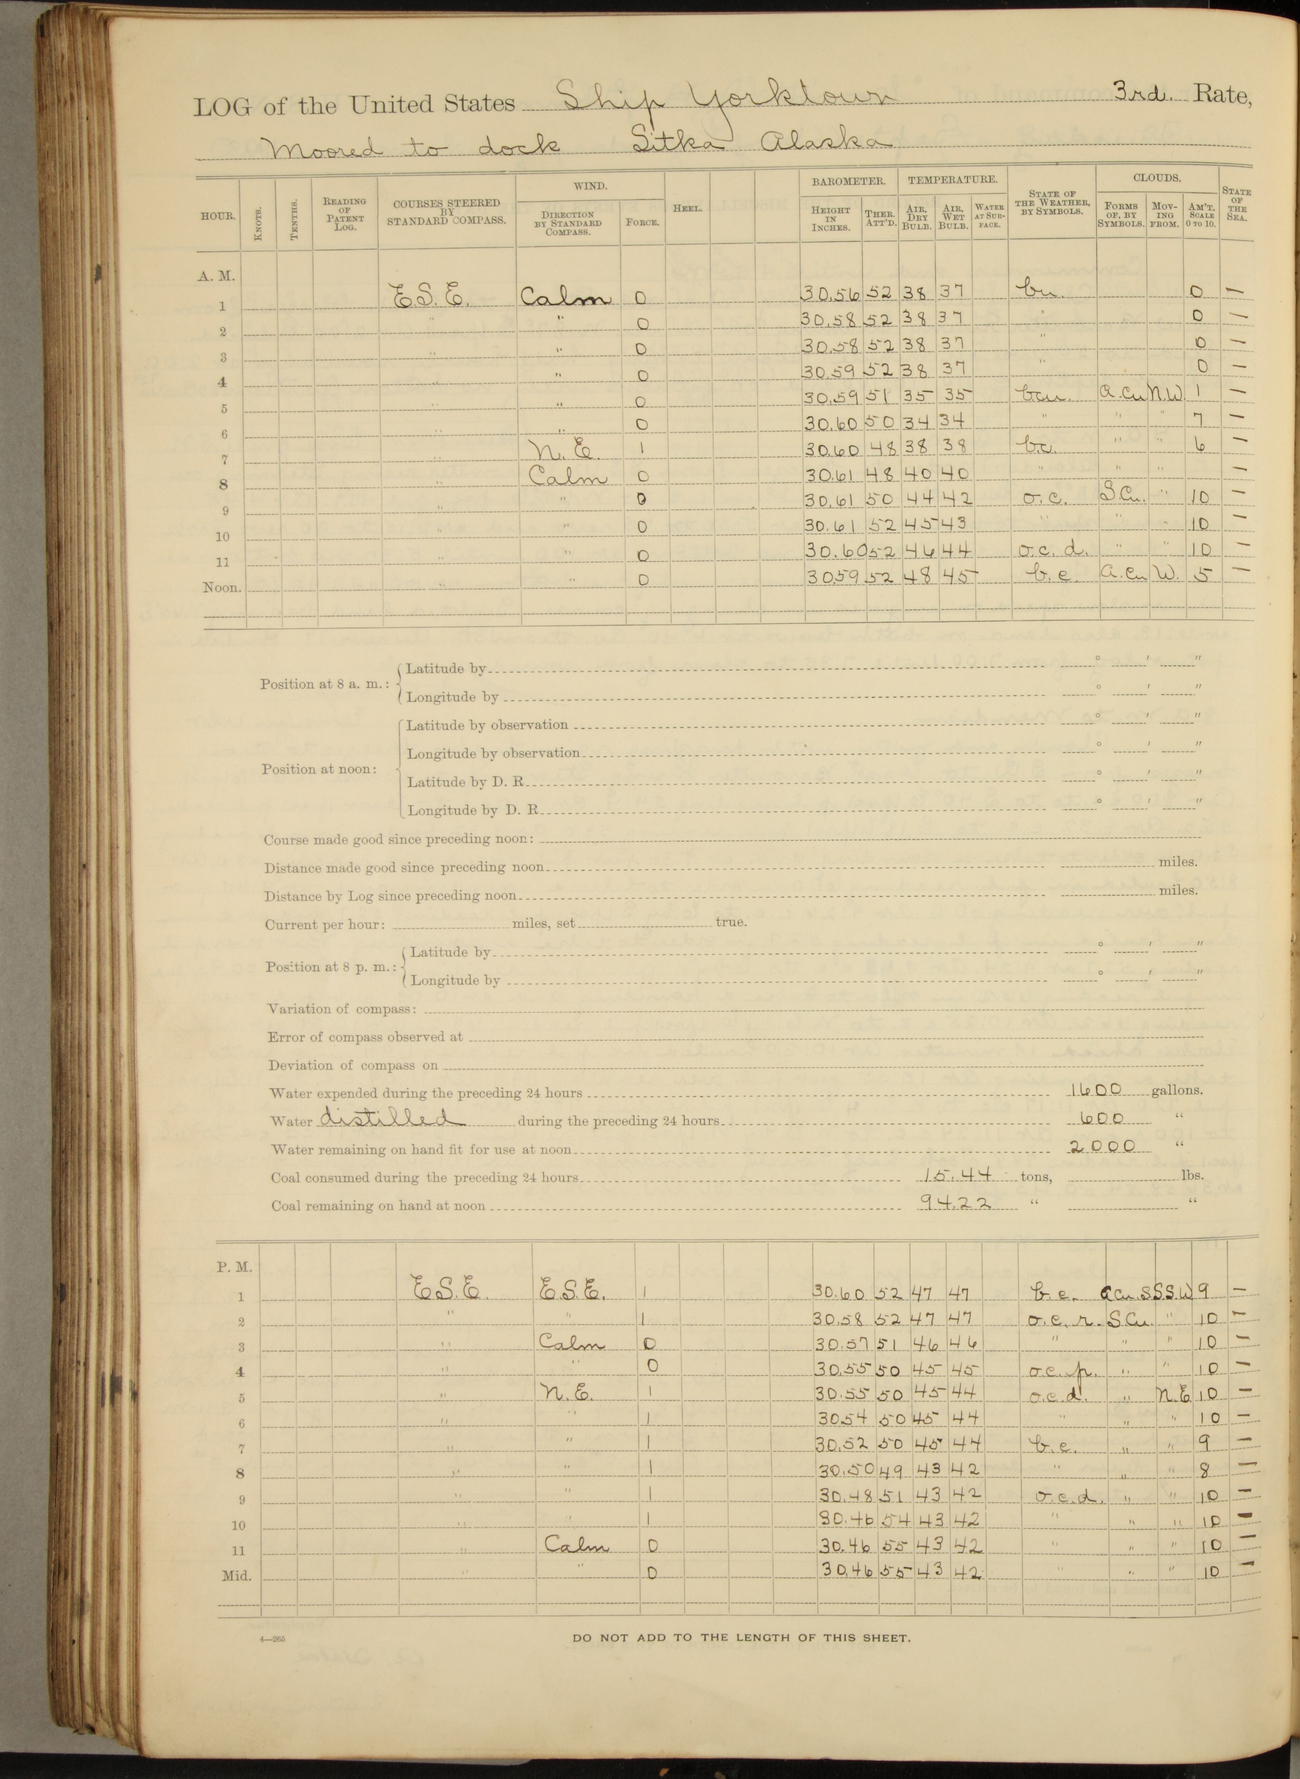 LOG of the United States Ship Yorktown 3rd. Rate,
Moored to dock Sitka Alaska
HOUR. KNOTS. TENTHS. READING OF PATENT LOG. COURSES STEERED BY STANDARD COMPASS. WIND. DIRECTION BY STANDARD COMPASS. FORCE. HEEL. BAROMETER. HEIGHT IN INCHES. THER. ATT'D. TEMPERATURE. AIR, DRY BULB. AIR, WET BULB. WATER AT SURFACE. STATE OF THE WEATHER, BY SYMBOLS. CLOUDS. FORMS OF, BY SYMBOLS. MOVING FROM. AM'T. SCALE 0 TO 10. STATE OF THE SEA.
A. M.
1 E.S.E. Calm 0 30.56 52 38 37 bu. 0 —
2 " " 0 30.58 52 38 37 " 0 —
3 " " 0 30.58 52 38 37 " 0 —
4 " " 0 30.59 52 38 37 " 0 —
5 " " 0 30.59 51 35 35 bcu. A.Cu N.W. 1 —
6 " " 0 30.60 50 34 34 " " " 7 —
7 " N.E. 1 30.60 48 38 38 bc. " " 6 —
8 " Calm 0 30.61 48 40 40 " " " —
9 " " 0 30.61 50 44 42 o.c. S.Cu. " 10 —
10 " " 0 30.61 52 45 43 " " " 10 —
11 " " 0 30.60 52 46 44 o.c.d. " " 10 —
Noon. " " 0 30.59 52 48 45 b.c. A.Cu W. 5 —
Position at 8 a. m.: Latitude by ° ′ ″
Longitude by ° ′ ″
Position at noon: Latitude by observation ° ′ ″
Longitude by observation ° ′ ″
Latitude by D. R. ° ′ ″
Longitude by D. R. ° ′ ″
Course made good since preceding noon:
Distance made good since preceding noon miles.
Distance by Log since preceding noon miles.
Current per hour: miles, set true.
Position at 8 p. m.: Latitude by ° ′ ″
Longitude by ° ′ ″
Variation of compass:
Error of compass observed at
Deviation of compass on
Water expended during the preceding 24 hours 1600 gallons.
Water distilled during the preceding 24 hours 600 "
Water remaining on hand fit for use at noon 2000 "
Coal consumed during the preceding 24 hours 15.44 tons, lbs.
Coal remaining on hand at noon 94.22 " "
P. M.
1 E.S.E. E.S.E. 1 30.60 52 47 47 b.c. A.Cu.S S.S.W 9 —
2 " " 1 30.58 52 47 47 o.c.r. S.Cu. " 10 —
3 " Calm 0 30.57 51 46 46 " " " 10 —
4 " " 0 30.55 50 45 45 o.c.p. " " 10 —
5 " N.E. 1 30.55 50 45 44 o.c.d. " N.E. 10 —
6 " " 1 30.54 50 45 44 " " " 10 —
7 " " 1 30.52 50 45 44 b.c. " " 9 —
8 " " 1 30.50 49 43 42 " " " 8 —
9 " " 1 30.48 51 43 42 o.c.d. " " 10 —
10 " " 1 30.46 54 43 42 " " " 10 —
11 " Calm 0 30.46 55 43 42 " " " 10 —
Mid. " " 0 30.46 55 43 42 " " " 10 —
4—265 DO NOT ADD TO THE LENGTH OF THIS SHEET.